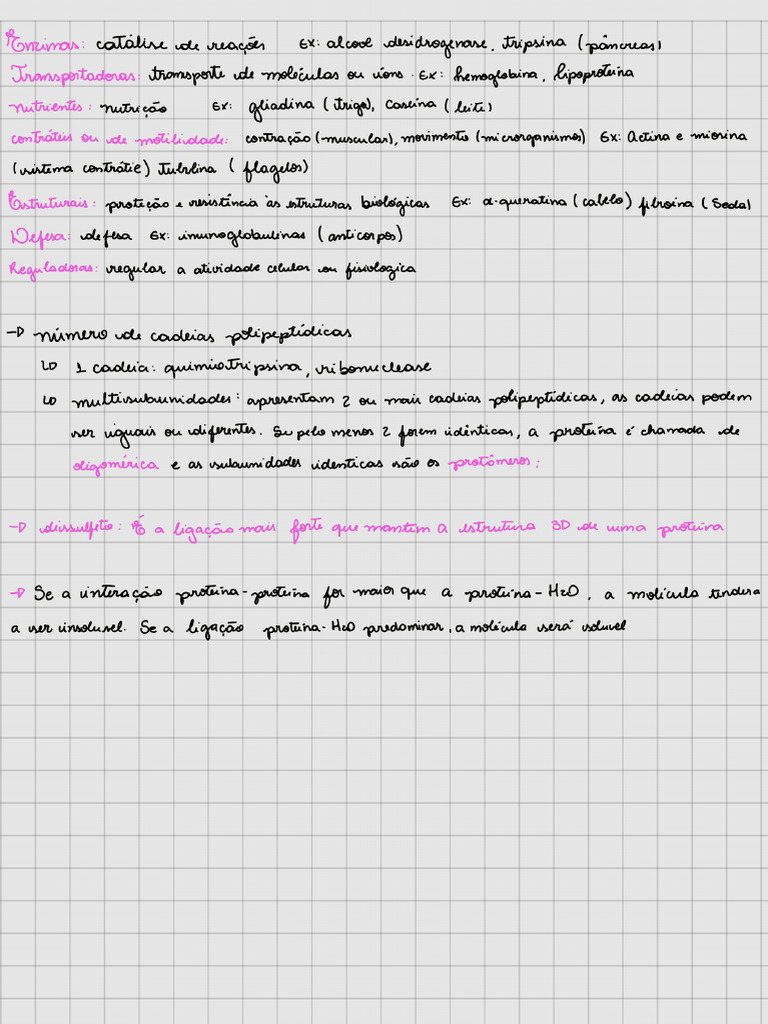 Enzimas: catálise de reações Ex: alcool desidrogenase, tripsina (pâncreas)
Transportadoras: transporte de moléculas ou íons. Ex: hemoglobina, lipoproteína
nutrientes: nutrição Ex: gliadina (trigo), caseína (leite)
contráteis ou de motilidade: contração (muscular), movimento (microrganismos) Ex: Actina e miosina
(sistema contrátil) tubulina (flagelos)
Estruturais: proteção e resistência às estruturas biológicas Ex: α-queratina (cabelo) fibroína (Seda)
Defesa: defesa Ex: imunoglobulinas (anticorpos)
Reguladoras: regular a atividade celular ou fisiologica
→ número de cadeias polipeptídicas
↳ 1 cadeia: quimiotripsina, ribonuclease
↳ multisubunidades: apresentam 2 ou mais cadeias polipeptídicas, as cadeias podem
ser iguais ou diferentes. Se pelo menos 2 forem idênticas, a proteína é chamada de
oligomérica e as subunidades identicas são os protômeros;
→ dissulfeto: É a ligação mais forte que mantem a estrutura 3D de uma proteína
→ Se a interação proteína-proteína for maior que a proteína-H2O, a molécula tendera
a ser insoluvel. Se a ligação proteína-H2O predominar, a molécula será soluvel